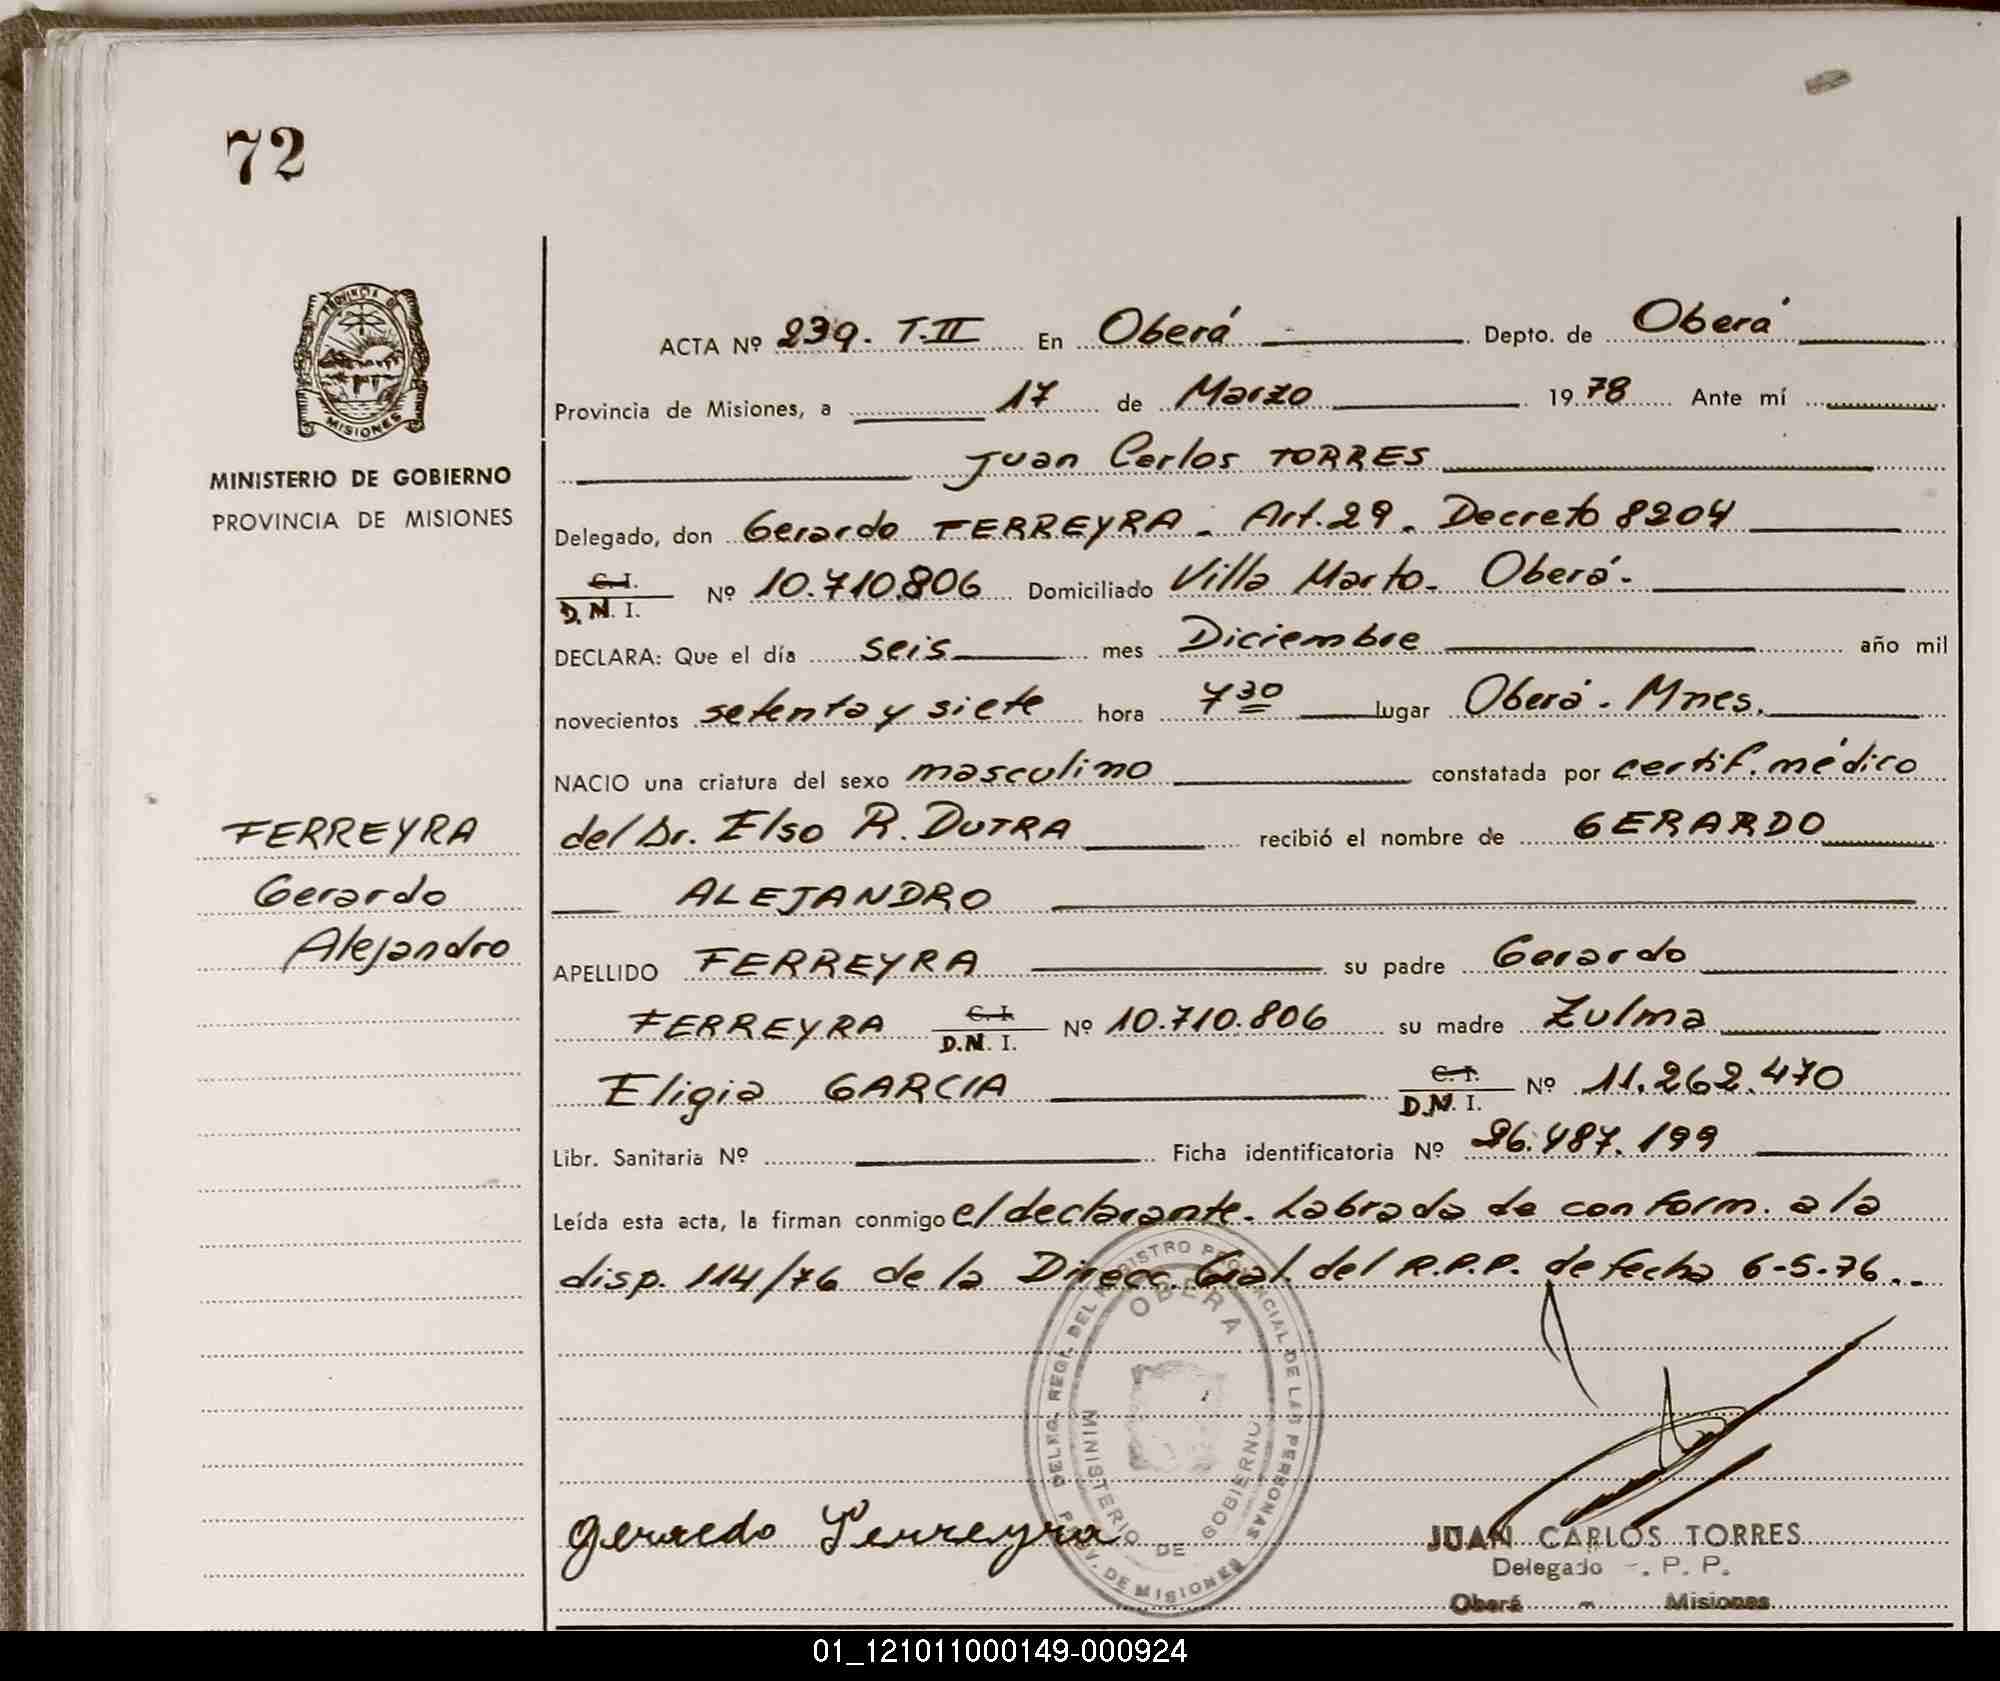 72
PROVINCIA DE
MISIONES
MINISTERIO DE GOBIERNO
PROVINCIA DE MISIONES
ACTA Nº 239. T.II En Oberá Depto. de Oberá
Provincia de Misiones, a 17 de Marzo 1978 Ante mí
Juan Carlos TORRES
Delegado, don Gerardo FERREYRA. Art. 29. Decreto 8204
C. I.
D.N. I. Nº 10.710.806 Domiciliado Villa Marto. Oberá.
DECLARA: Que el día seis mes Diciembre año mil
novecientos setenta y siete hora 7 30 lugar Oberá. Mnes.
NACIO una criatura del sexo masculino constatada por certif. médico
FERREYRA del Dr. Elso R. DUTRA recibió el nombre de GERARDO
Gerardo ALEJANDRO
Alejandro APELLIDO FERREYRA su padre Gerardo
FERREYRA C. I. D.N. I. Nº 10.710.806 su madre Zulma
Eligia GARCIA C. I. D.N. I. Nº 11.262.470
Libr. Sanitaria Nº Ficha identificatoria Nº 26.487.199
Leída esta acta, la firman conmigo el declarante. Labrada de conform. a la
disp. 114/76 de la Direcc. Gral. del R.P.P. de fecha 6-5-76..
DELEG. REGI. DEL REGISTRO PROVINCIAL DE LAS PERSONAS
OBERA
MINISTERIO DE GOBIERNO
PROV. DE MISIONES
Gerardo Ferreyra
JUAN CARLOS TORRES
Delegado . P. P.
Oberá - Misiones
01_121011000149-000924